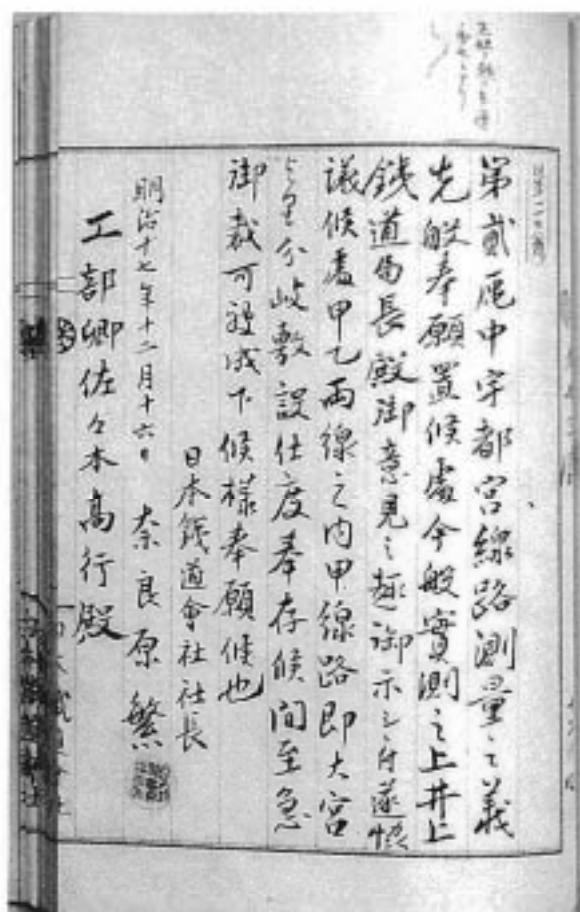 第貳區中宇都宮線路測量之義
先般奉願置候處今般實測之上井上
鉄道局長殿御意見之趣御示シニ付遂恊
議候處甲乙両線之内甲線路即大宮
ヨリ分岐敷設仕度奉存候間至急
御裁可被成下候様奉願候也
日本鉄道會社社長
明治十七年十二月十六日 奈良原繁
工部卿佐々木高行殿